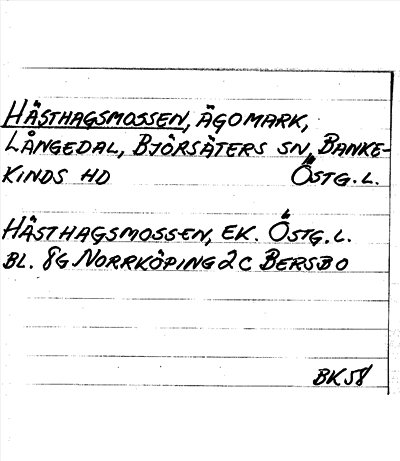 HÄSTHAGSMOSSEN, ÄGOMARK,
LÅNGEDAL, BJÖRSÄTERS SN, BANKE-
KINDS HD ÖSTG. L.
HÄSTHAGSMOSSEN, EK. ÖSTG. L.
BL. 8G NORRKÖPING 2C BERSBO
BK58